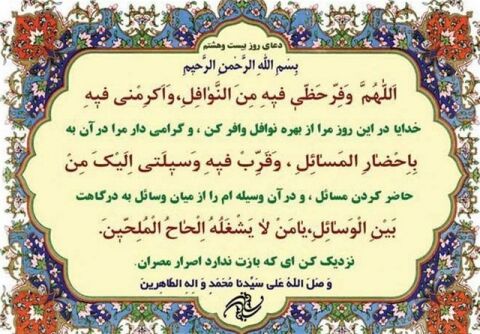 دعای روز بیست وهشتم
بِسْمِ اللهِ الرَّحْمنِ الرَّحیمِ
اَللّهُمَّ وَفِّرْحَظّى فیهِ مِنَ النَّوٰافِلِ،وَاَکْرِمْنى فیهِ
خدایا در این روز مرا از بهره نوافل وافر کن ، و گرامی دار مرا درآن به
بِاِحْضٰارِ الْمَسٰائِلِ ، وَقَرِّبْ فیهِ وَسیلَتى اِلَیْکَ مِنْ
حاضر کردن مسائل ، و درآن وسیله ام را از میان وسائل به درگاهت
بَیْنِ الْوَسٰائِلِ،یٰامَنْ لاٰ یَشْغَلُهُ اِلْحٰاحُ الْمُلِحّینَ.
نزدیک کن ای که بازت ندارد اصرار مصران.
وَ صَلَّ اللهُ عَلی سَیِّدِنا مُحَمَّدٍ وَ الِهِ الطّاهِرینَ